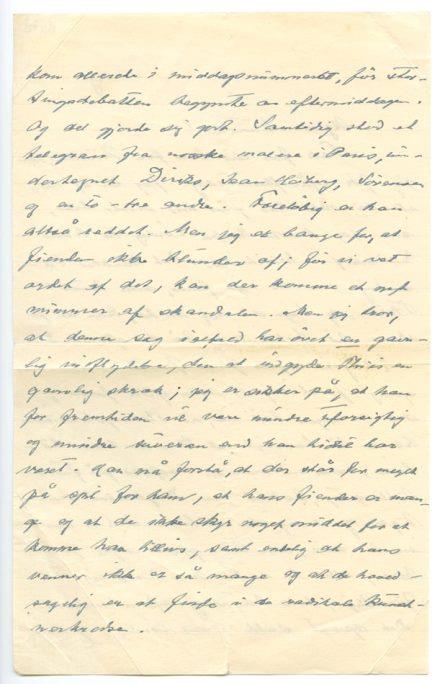 kom allerede i middagsnummeret, før Stor-
tingsdebatten begynte om eftermiddagen.
Og det gjorde sig godt. Samtidig stod et
telegram fra norske malere i Paris, un-
dertegnet Diriks, Jean Heiberg, Sørensen
og en to-tre andre. Foreløbig er han
altså reddet. Men jeg er bange for, at
fienden ikke blunder af; før vi vet
ordet af det, kan der komme et nyt
nummer af skandalen. Men jeg tror,
at denne sag i retned har øvet en gavn-
lig indflydelse, den at indgyde Thiis en
gavnlig skræk; jeg er sikker på, at han
for fremtiden vil være mindre uforsigtig
og mindre suveræn end han hittil har
været. Han må forstå, at der står for meget
på spil for ham, at hans fiender er man-
ge og at de ikke skyr noget middel for at
komme ham tillivs, samt endelig at hans
venner ikke er så mange og at de hoved-
sagelig er at finde i de radikale kunst-
nerkredse.